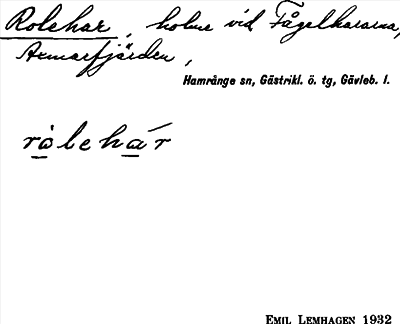 Rolehar, holme vid Fågelhararna,
Axmarfjärden,
Hamrånge sn, Gästrikl. ö. tg, Gävleb. l.
ròlehár
EMIL LEMHAGEN 1932